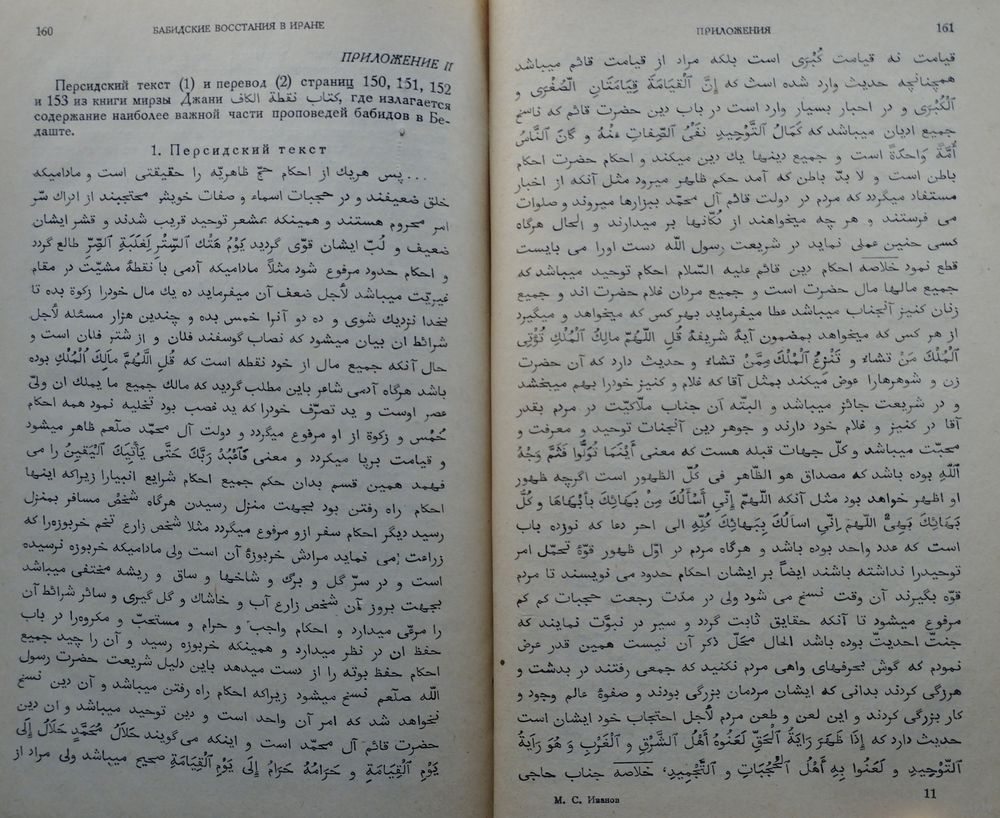 160
БАБИДСКИЕ ВОССТАНИЯ В ИРАНЕ
ПРИЛОЖЕНИЕ II
Персидский текст (1) и перевод (2) страниц 150, 151, 152
и 153 из книги мирзы Джани كتاب نقطة الكاف, где излагается
содержание наиболее важной части проповедей бабидов в Бе-
даште.
1. Персидский текст
... پس هريك از احكام حقّ ظاهريّه را حقيقتى است و مادامیکه
خلق ضعیفند و در حجبات اسماء و صفات خويش محتجبند از ادراك سّر
امر محروم هستند و همینکه بمشعر توحید قریب شدند و قشر ایشان
ضعیف و لُبّ ایشان قوّى گردید يَوْمُ هَتْكِ ٱلسِّتْرِ لِغَلَبَةِ ٱلسِّرِّ طالع گردد
و احكام حدود مرفوع شود مثلاً مادامیکه آدمى با نقطهٔ مشيّت در مقام
غيريّت میباشد لأجل ضعف آن میفرماید ده يك مال خودرا زكوة بده تا
بخدا نزديك شوى و ده دو آنرا خمس بده و چندین هزار مسئله لأجل
شرائط ان بیان میشود که نصاب گوسفند فلان و از شتر فلان است و
حال آنکه جمیع مال از خود نقطه است که قُلِ اللَّهُمَّ مَالِكَ ٱلْمُلْكِ بوده
باشد هرگاه آدمى شاعر باین مطلب گردید که مالك جمیع ما یملك ان ولىّ
عصر اوست و ید تصرّف خودرا که ید غصب بود تخلیه نمود همه احکام
خُمْس و زكوة از او مرفوع میگردد و دولت آل محمّد صلّعم ظاهر میشود
و قیامت برپا میگردد و معنى فَٱعْبُدْ رَبَّكَ حَتَّى يَأْتِيَكَ ٱلْيَقِينُ را مى
فهمد همین قسم بدان حکم جمیع احکام شرایع انبیارا زیراکه اینها
احكام راه رفتن بود بجهت منزل رسیدن هرگاه شخص مسافر بمنزل
رسید دیگر احکام سفر ازو مرفوع میگردد مثلا شخص زارع تخم خربوزه‌را که
زراعت مى نماید مرادش خربوزهٔ آن است ولى مادامیکه خربوزه نرسیده
است و در سرّ گل و برگ و شاخها و ساق و ریشه مختفى میباشد
بجهت بروز آن شخص زارع آب و خاشاك و گل گیرى و سائر شرائط آن
را مرعّى میدارد و احکام واجب و حرام و مستحبّ و مکروه‌را در باب
حفظ ان در نظر میدارد و همینکه خربوزه رسید و آن را چید جمیع
احکام حفظ بوته را از دست میدهد باین دلیل شریعت حضرت رسول
الله صلّعم نسخ میشود زیراکه احکام راه رفتن میباشد و آن دین نسخ
نخواهد شد که امر آن واحد است و دین توحید میباشد و ان دین
حضرت قائم آل محمّد است و اینکه مى گویند حَلَالُ مُحَمَّدٍ حَلَالٌ إِلَى
يَوْمِ ٱلْقِيَامَةِ و حَرَامُهُ حَرَامٌ إِلَى يَوْمِ ٱلْقِيَامَةِ صحیح میباشد ولى مراد از
ПРИЛОЖЕНИЯ
161
قیامت نه قیامت كُبْرَى است بلکه مراد از قیامت قائم میباشد
همچنانچه حدیث وارد شده است که إِنَّ ٱلْقِيَامَةَ قِيَامَتَانِ ٱلصُّغْرَى و
ٱلْكُبْرَى و در اخبار بسیار وارد است در باب دین حضرت قائم که ناسخ
جمیع ادیان میباشد که كَمَالُ ٱلتَّوْحِيدِ نَفْىُ ٱلصِّفَاتِ عَنْهُ و كَانَ ٱلنَّاسُ
أُمَّةً وَاحِدَةً است و جمیع دینها یك دین میکند و احکام حضرت احکام
باطن است و لا بدّ باطن که آمد حکم ظاهر میرود مثل آنکه از اخبار
مستفاد میگردد که مردم در دولت قائم آل محمّد ببزارها میروند و صلوات
مى فرستند و هر چه میخواهند از دُكّانها بر میدارند و الحال هرگاه
کسى چنین عملى نماید در شریعت رسول الله دست اورا مى بایست
قطع نمود خلاصه احکام دین قائم علیه السلام احکام توحید میباشد که
جمیع مالها مال حضرت است و جمیع مردان غلام حضرت اند و جمیع
زنان کنیز آنجناب میباشد عطا میفرماید بهر کس که میخواهد و میگیرد
از هر کس که میخواهد بمضمون آیهٔ شریفهٔ قُلِ اللَّهُمَّ مَالِكَ ٱلْمُلْكِ تُؤْتِى
ٱلْمُلْكَ مَنْ تشاء و تَنْزِعُ ٱلْمُلْكَ مِمَّنْ تشاء و حدیث دارد که آن حضرت
زن و شوهرهارا عوض میکند بمثل آقا که غلام و کنیز خودرا بهم میبخشد
و در شریعت جائز میباشد و البتّه آن جناب ملاكیّت در مردم بقدر
آقا در کنیز و غلام خود دارند و جوهر دین آنجنات توحید و معرفت و
محبّت میباشد و کلّ جهات قبله هست که معنى أَيْنَمَا تُوَلُّوا فَثَمَّ وَجْهُ
ٱللَّهِ بوده باشد که مصداق هو الظاهر فى كُلّ الظهور است اگرچه ظهور
او اظهر خواهد بود مثل آنکه اللّهم إِنِّى أَسْأَلُكَ مِنْ بَهَائِكَ بِأَبْهَاهَا و كُلُّ
بَهَائِكَ بَهِىٌّ اللّهم اِنّى اسألك بِبَهَائِكَ كُلِّهِ الى اخر دعا که نوزده باب
است که عدد واحد بوده باشد و هرگاه مردم در اوّل ظهور قوّهٔ تحمّل امر
توحیدرا نداشته باشند ایضاً بر ایشان احکام حدود مى نویسند تا مردم
قوّه بگیرند آن وقت نسخ مى شود ولى در مدّت رجعت حجبات کم کم
مرفوع میشود تا آنکه حقایق ثابت گردد و سیر در نبوّت نمایند که
جنّت احدیّت بوده باشد الحال محلّ ذکر آن نیست همین قدر عرض
نمودم که گوش بحرفهاى واهى مردم نکنید که جمعى رفتند در بدشت و
هرزگى کردند بدانى که ایشان مردمان بزرگى بودند و صفوهٔ عالم وجود و
کار بزرگى کردند و این لعن و طعن مردم لأجل احتجاب خود ایشان است
حدیث دارد که إِذَا ظَهَرَ رَايَةُ ٱلْحَقِّ لَعَنُوهُ أَهْلُ ٱلشَّرْقِ و ٱلْغَرْبِ وَ هُوَ رَايَةُ
ٱلتَّوْحِيدِ و لَعَنُوا بِهِ أَهْلُ ٱلْحُجُبَاتِ و ٱلتَّجْمِيدِ، خلاصه جناب حاجى
М. С. Иванов
11